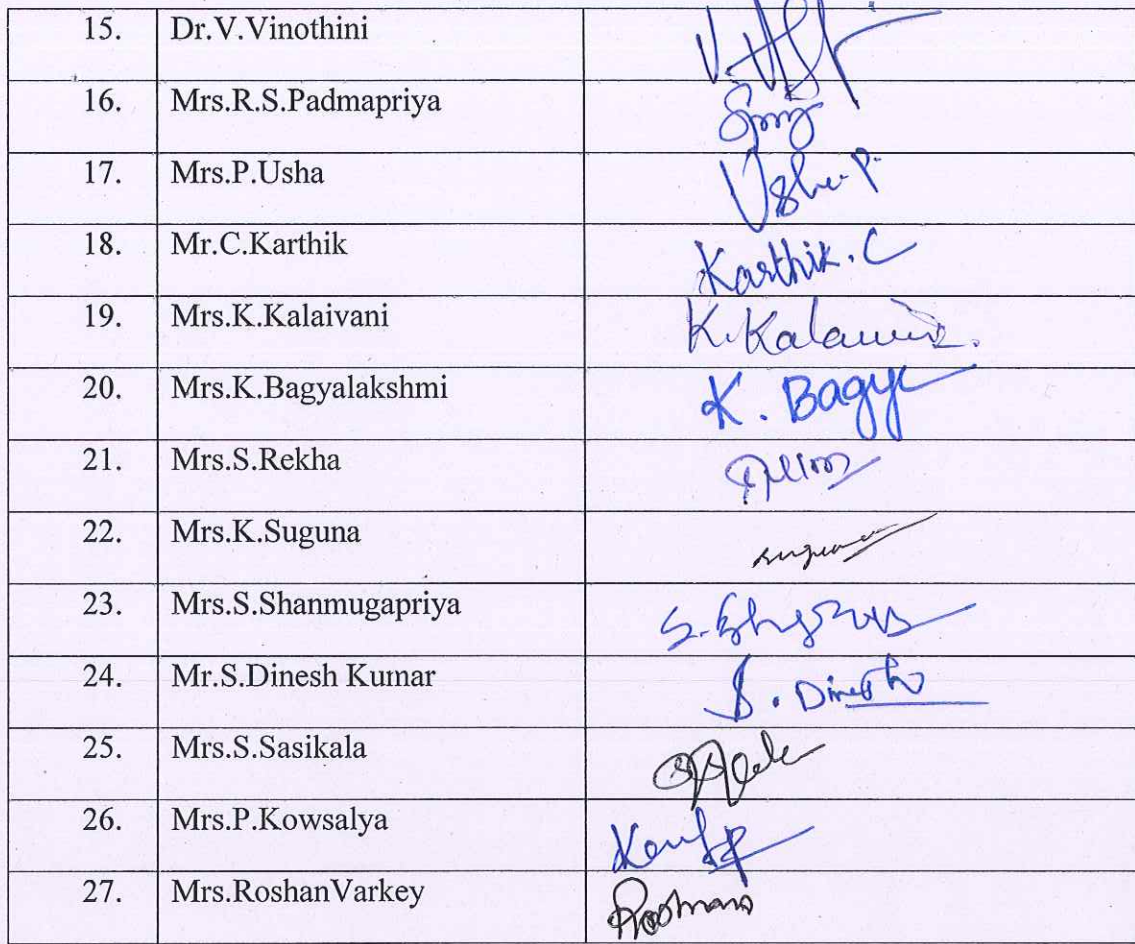 15. Dr.V.Vinothini
16. Mrs.R.S.Padmapriya
17. Mrs.P.Usha Usha P.
18. Mr.C.Karthik Karthik. C
19. Mrs.K.Kalaivani K. Kalaivani.
20. Mrs.K.Bagyalakshmi K. Bagya
21. Mrs.S.Rekha
22. Mrs.K.Suguna suguna
23. Mrs.S.Shanmugapriya
24. Mr.S.Dinesh Kumar S. Dinesh
25. Mrs.S.Sasikala
26. Mrs.P.Kowsalya
27. Mrs.RoshanVarkey